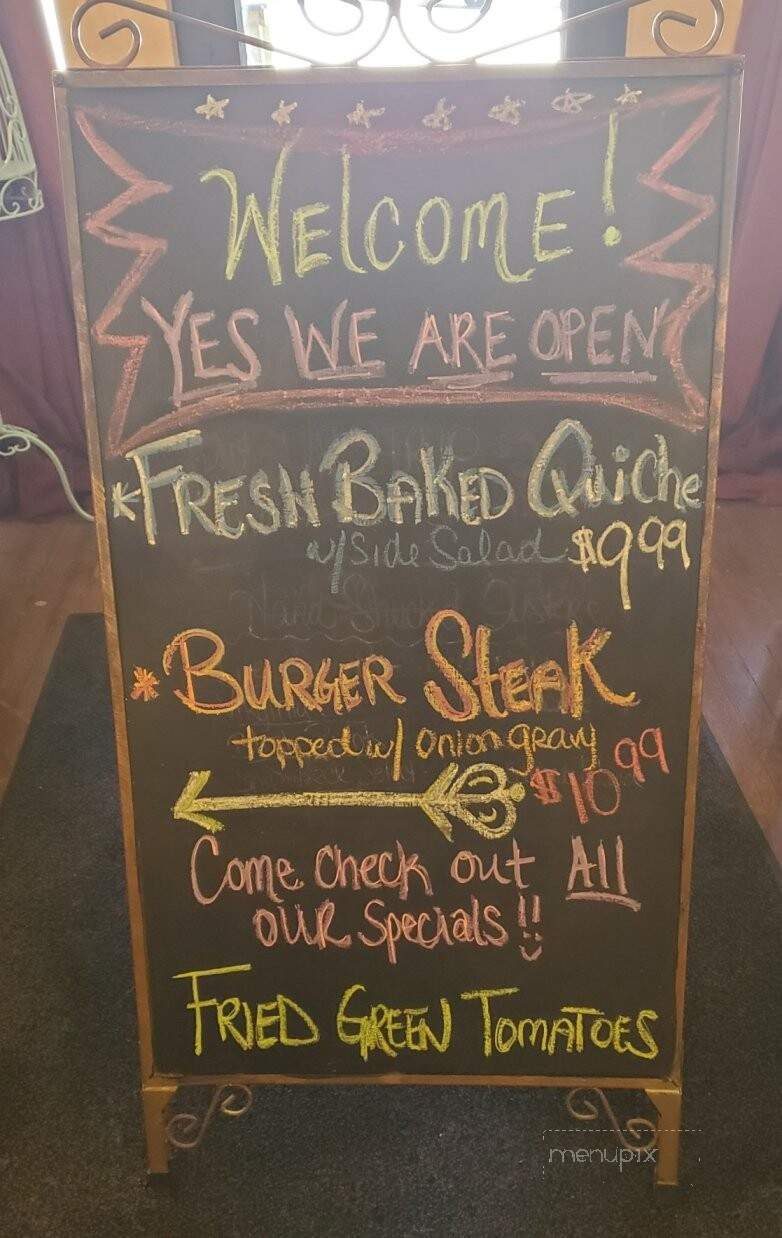 Welcome!
YES WE ARE OPEN
FRESH BAKED Quiche
w/ Side Salad $9.99
* BURGER STEAK
topped w/ onion gravy
$10.99
Come check out All
OUR Specials!!
FRIED GREEN TOMATOES
menupix